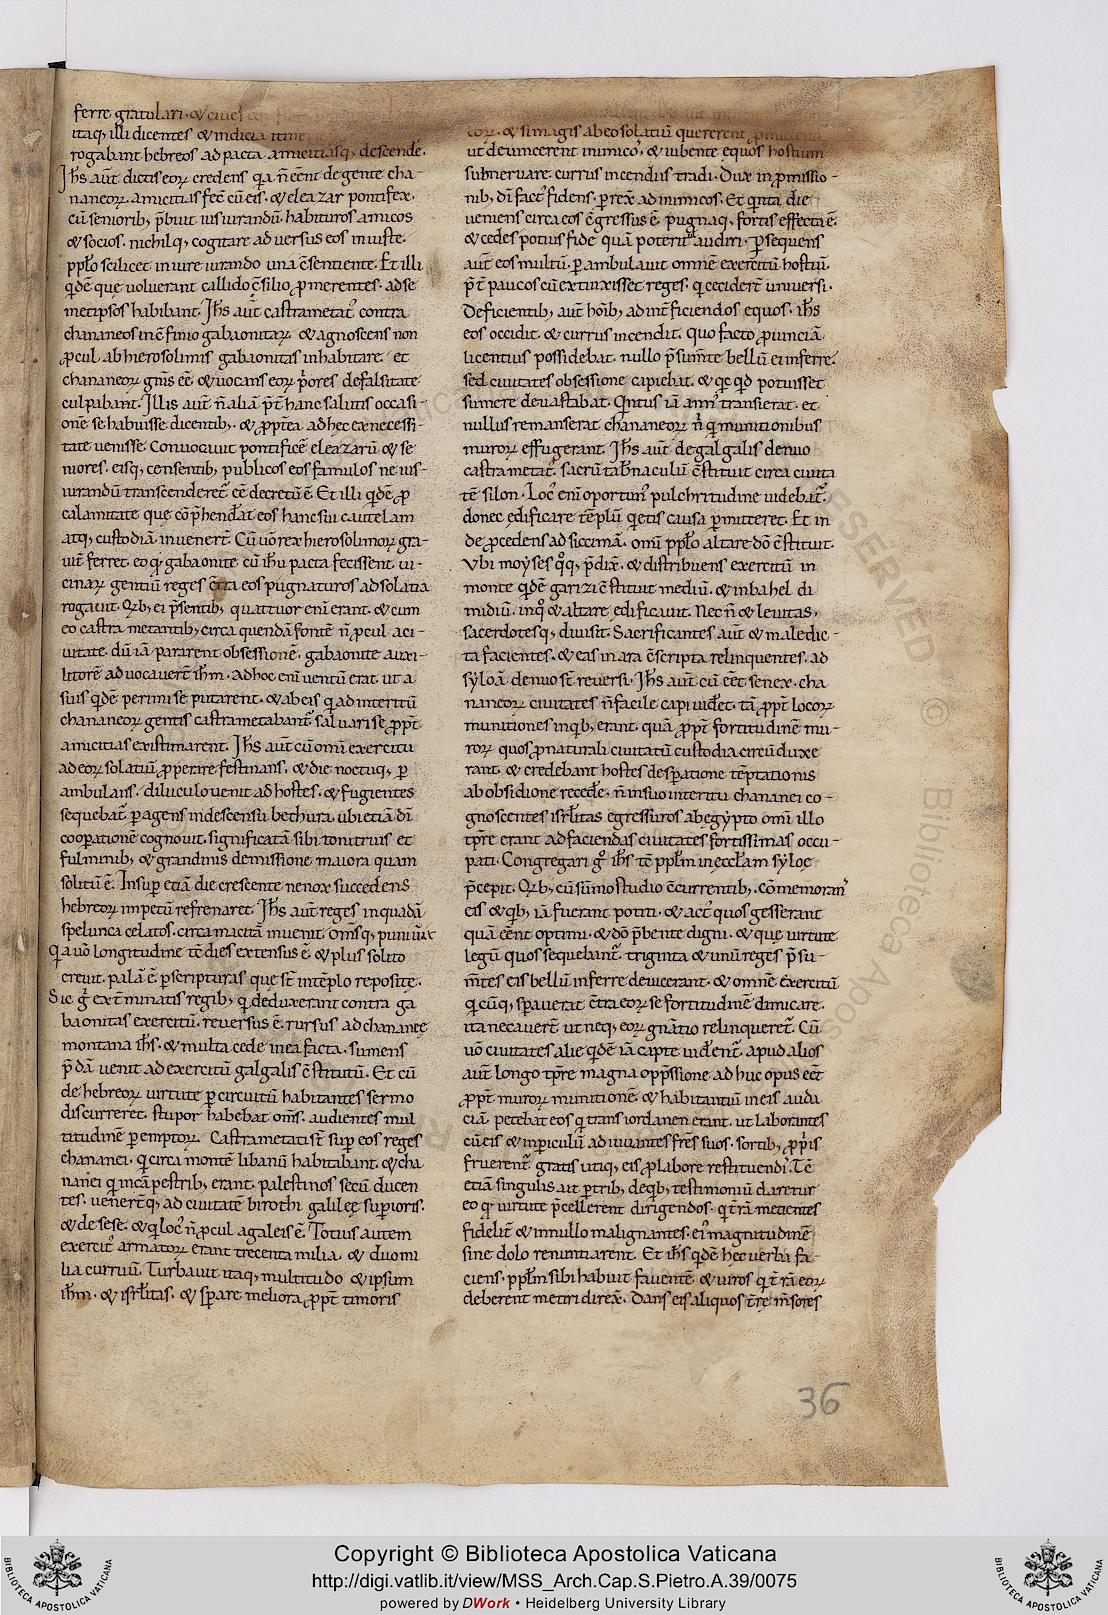 ferre gratulari· & ciues
itaq; illi dicentes & indicia itine
rogabant hebreos ad pacta amicitiasq; descende·
Ih̅s aut̅ dictis eoꝝ credens q̅a n̅ e̅ent de gente cha-
naneoꝝ· amicitias fec̅ cu̅ eis· & eleazar pontifex·
cu̅ seniorib; p̅buit iusiurandu̅· habituros amicos
& socios· nichilq; cogitare aduersus eos iniuste·
pp̅lo scilicet in iure iurando una c̅sentiente· Et illi
q̅de̅ que uoluerant callido c̅silio ꝓmerentes· ad se
metipsos habibant· Ih̅s aut̅ castrametat᷑ contra
chananeos in c̅finio gabaonitaꝝ· & agnoscens non
ꝓcul ab hierosolimis gabaonitas inhabitare· et
chananeoꝝ gn̅is e̅e· & uocans eoꝝ p̅ores de falsitate
culpabant· Illis aut̅ n̅ alia̅ p̅t̅ hanc salutis occasi-
one̅ se habuisse dicentib; & ꝓpt̅ea ad hec ex necessi-
tate uenisse· Conuocauit pontifice̅ eleazaru̅ & se
niores· eisq; censentib; publicos eos famulos ne ius-
iurandu̅ transcenderet᷑ e̅e decretu̅ e̅· Et illi q̅de̅ ꝓ
calamitate que co̅p̅hendẻat eos hanc sui cautelam
atq; custodia̅ inuenert̅· Cu̅ uo̅ rex hierosolimoꝝ gra-
uit̅ ferret· eo q̅ gabaonite cu̅ ih̅u pacta fecissent· ui-
cinaꝝ gentiu̅ reges c̅tra eos pugnaturos ad solatia
rogauit· Qrb; ei p̅sentib; quattuor eni̅ erant· & cum
eo castra metantib; circa quenda̅ fonte̅ n̅ ꝓcul a ci-
uitate· du̅ ia̅ pararent obsessione̅· gabaonite auxi-
litore̅ aduocauert̅ ih̅m· ad hoc eni̅ uentu̅ erat· ut a
suis q̅de̅ perimi se putarent· & ab eis q̅ ad interitu̅
chananeoꝝ gentis castrametabant᷑ saluari se ꝓpt̅
amicitias existimarent· Ih̅s aut̅ cu̅ omi̅ exercitu
ad eoꝝ solatiu̅ ꝓperare festinans· & die noctuq; ꝑ
ambulans· diluculo uenit ad hostes· & fugientes
sequebat᷑ ꝑagens in descensu bechura· ubi etia̅ di̅
cooꝑatione̅ cognouit· significata̅ sibi tonitruis et
fulminib; & grandinis demissione maiora quam
solitu̅ e̅· Insuꝑ etia̅ die crescente ne nox succedens
hebreoꝝ impetu̅ refrenaret· Ih̅s aut̅ reges in quada̅
spelunca celatos· circa macita̅ inuenit· Om̅sq; puniuit̅
Q̅a uo̅ longitudine te̅ dies extensus e̅ & plus solito
creuit· pala̅ e̅ ꝑ scripturas que st̅ in te̅plo reposite·
Sic g̊ ext̅minatis regib; q̅ deduxerant contra ga
baonitas exercitu̅· reuersus e̅ rursus ad chananeę
montana ih̅s· & multa cede in ea facta· sumens
p̅da̅ uenit ad exercitu̅ galgalis c̅stitutu̅· Et cu̅
de hebreoꝝ uirtute ꝑ circuitu̅ habitantes sermo
discurreret· stupor habebat om̅s· audientes mul
titudine̅ ꝑemptoꝝ· Castrametati st̅ suꝑ eos reges
chananei· q̅ circa monte̅ libanu̅ habitabant· & cha
nanei q̅ in ca̅pestrib; erant· palestinos secu̅ ducen
tes· uenert̅q; ad ciuitate̅ birothi galileę suꝑioris·
& de sese· & q̅ loc᷒ n̅ ꝓcul a galeis e̅· Totius autem
exercit᷒ armatoꝝ erant trecenta milia· & duo mi
lia curruu̅· Turbauit itaq; multitudo & ipsum
ih̅m· & isrl̅itas· & sꝑare meliora ꝓpt̅ timoris
eoꝝ· & si magis ab eo solatiu̅ quererent ꝓmitteret
ut deuincerent inimicos· & iubente equos hostium
subneruare· currus incendiis tradi· Dux in ꝓmissio-
nib; di̅ fact᷒ fidens· ꝑrex̅ ad inimicos· Et q̅nta die
ueniens circa eos c̅gressus e̅· pugnaq; fortis effecta e̅·
& cedes potius fide qua̅ poterit audiri· Ꝑsequens
aut̅ eos multu̅· ꝑambulauit omne̅ exercitu̅ hostiu̅·
p̅t̅ paucos cu̅ extinxisset reges· q̅ ceciderent uniuersi·
Deficientib; aut̅ ho̅ib; ad int̅ficiendos equos· ih̅s
eos occidit· & currus incendit· quo facto ꝓuincia̅
licentius possidebat· nullo p̅sum̅te bellu̅ ei inferre·
sed ciuitates obsessione capiebat· & q̅cq̅d potuisset
sumere deuastabat· Quintus ia̅ ann᷒ transierat· et
nullus remanserat chananeoꝝ n̅ q̅ munitionibus
muroꝝ effugerant· Ih̅s aut̅ de galgalis denuo
castrametat᷑· sacru̅ tab̅naculu̅ c̅stituit circa ciuita
te̅ silon· Loc᷒ eni̅ oportun᷒ pulchritudine uidebat᷑·
donec edificare te̅plu̅ q̅etis causa ꝑmitteret· Et in
de ꝓcedens ad siccima̅· omi̅ pp̅lo altare do̅ c̅stituit·
Vbi moyses q̊q; p̅dix̅· & distribuens exercitu̅ in
monte q̅de̅ garizi c̅stituit mediu̅· & in bahel di
midiu̅· in q̊ & altare edificauit· Nec n̅ & leuitas·
sacerdotesq; diuisit· Sacrificantes aut̅ & maledic-
ta facientes· & eas in ara c̅scripta relinquentes· ad
syloa̅ denuo st̅ reuersi· Ih̅s aut̅ cu̅ e̅et senex· cha
naneoꝝ ciuitates n̅ facile capi uidẻet· ta̅ ꝓpt̅ locoꝝ
munitiones in q̅b; erant· qua̅ ꝓpt̅ fortitudine̅ mu-
roꝝ quos ꝓ naturali ciuitatu̅ custodia circu̅duxe
rant· & credebant hostes desꝑatione te̅ptationis
ab obsidione recede̅· n̅ in suo interitu chananei co-
gnoscentes isrl̅itas egressuros ab egypto omi̅ illo
tp̅re erant ad faciendas ciuitates fortissimas occu-
pati· Congregari g̊ ih̅s te̅ pp̅lm in eccl̅am syloe
p̅cepit· Qrb; cu̅ su̅mo studio c̅currentib; co̅memorans
eis & q̅b; ia̅ fuerant potiti· & act᷒ quos gesserant
qua̅ e̅ent optimi· & do̅ p̅bente digni· & que uirtute
legu̅ quos sequebant᷑· triginta & unu̅ reges p̅su-
m̅tes eis bellu̅ inferre deuicerant· & omne̅ exercitu̅
q̅cu̅q; sꝑauerat c̅tra eoꝝ se fortitudine̅ dimicare·
ita necauert̅ ut neq; eoꝝ gn̅atio relinqueret᷑· Cu̅
uo̅ ciuitates alie q̅de̅ ia̅ capte uidẻent᷑· apud alios
aut̅ longo tp̅re magna opp̅ssione adhuc opus e̅et
ꝓpt̅ muroꝝ munitione̅· & habitantiu̅ in eis auda
cia̅· petebat eos q̅ trans iordanen erant· ut laborantes
cu̅ eis & in ꝑiculu̅ adiuuantes fr̅es suos· sortib; ꝓp̅iis
fruerent᷑· gratis utiq; eis ꝓ labore restituendi· Te̅
etia̅ singulis ait ꝑ trib; de q̅b; testimoniu̅ daretur
eo q̅ uirtute p̅cellerent dirigendos· q̅ t̅ra̅ metientes
fidelit̅ & in nullo malignantes· ei᷒ magnitudine̅
sine dolo renuntiarent· Et ih̅s q̅de̅ hec uerba fa-
ciens· pp̅lm sibi habuit fauente̅ & uiros q̅ t̅ra̅ eoꝝ
deberent metiri direx̅· Dans eis aliquos t̅re m̅sores
36
Copyright © Biblioteca Apostolica Vaticana
http://digi.vatlib.it/view/MSS_Arch.Cap.S.Pietro.A.39/0075
powered by DWork • Heidelberg University Library